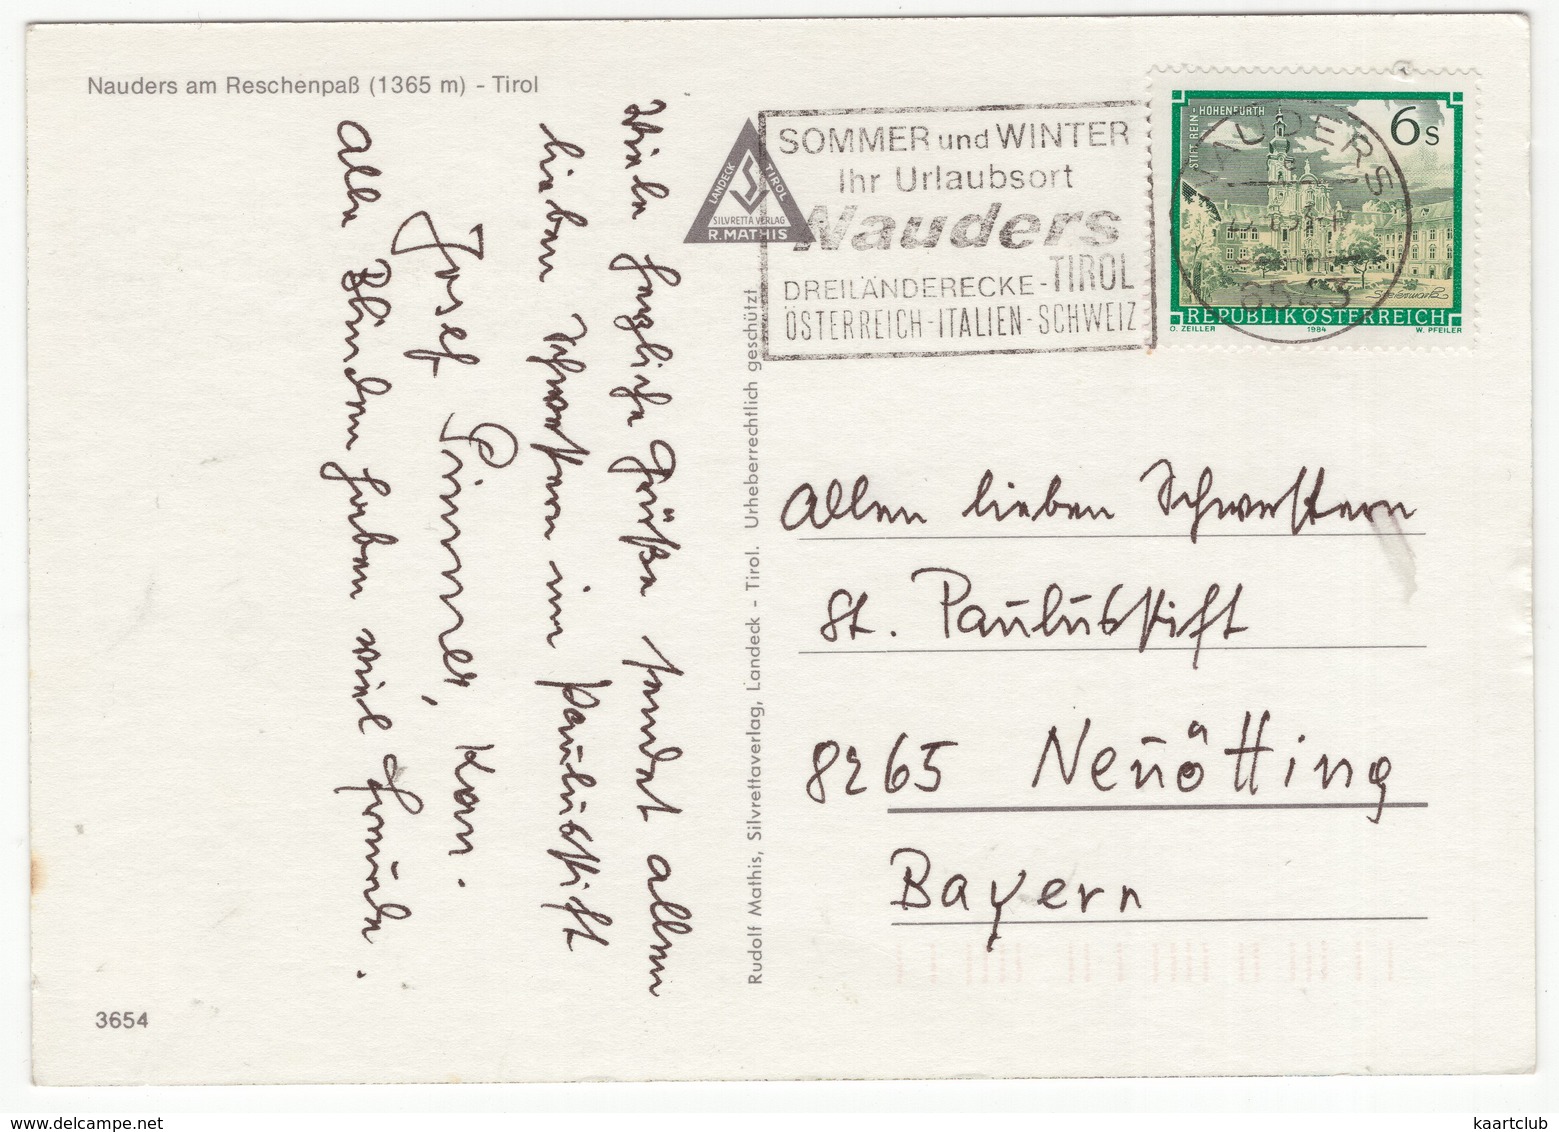 Nauders am Reschenpaß (1365 m) - Tirol
Viele herzliche Grüße sendet allen
lieben Schwestern im Paulusstift
Josef Pinner, Kan.
Alle Blinden haben viel Freude.
3654
Rudolf Mathis, Silvrettaverlag, Landeck - Tirol. Urheberrechtlich geschützt
LANDECK TIROL
SILVRETTA VERLAG
R. MATHIS
SOMMER und WINTER
Ihr Urlaubsort
Nauders
DREILÄNDERECKE - TIROL
ÖSTERREICH-ITALIEN-SCHWEIZ
NAUDERS
6543
STIFT REIN - HOHENFURTH
6 S
Steiermark
REPUBLIK ÖSTERREICH
O. ZEILLER 1984 W. PFEILER
Allen lieben Schwestern
St. Paulusstift
8265 Neuötting
Bayern
kaartclub